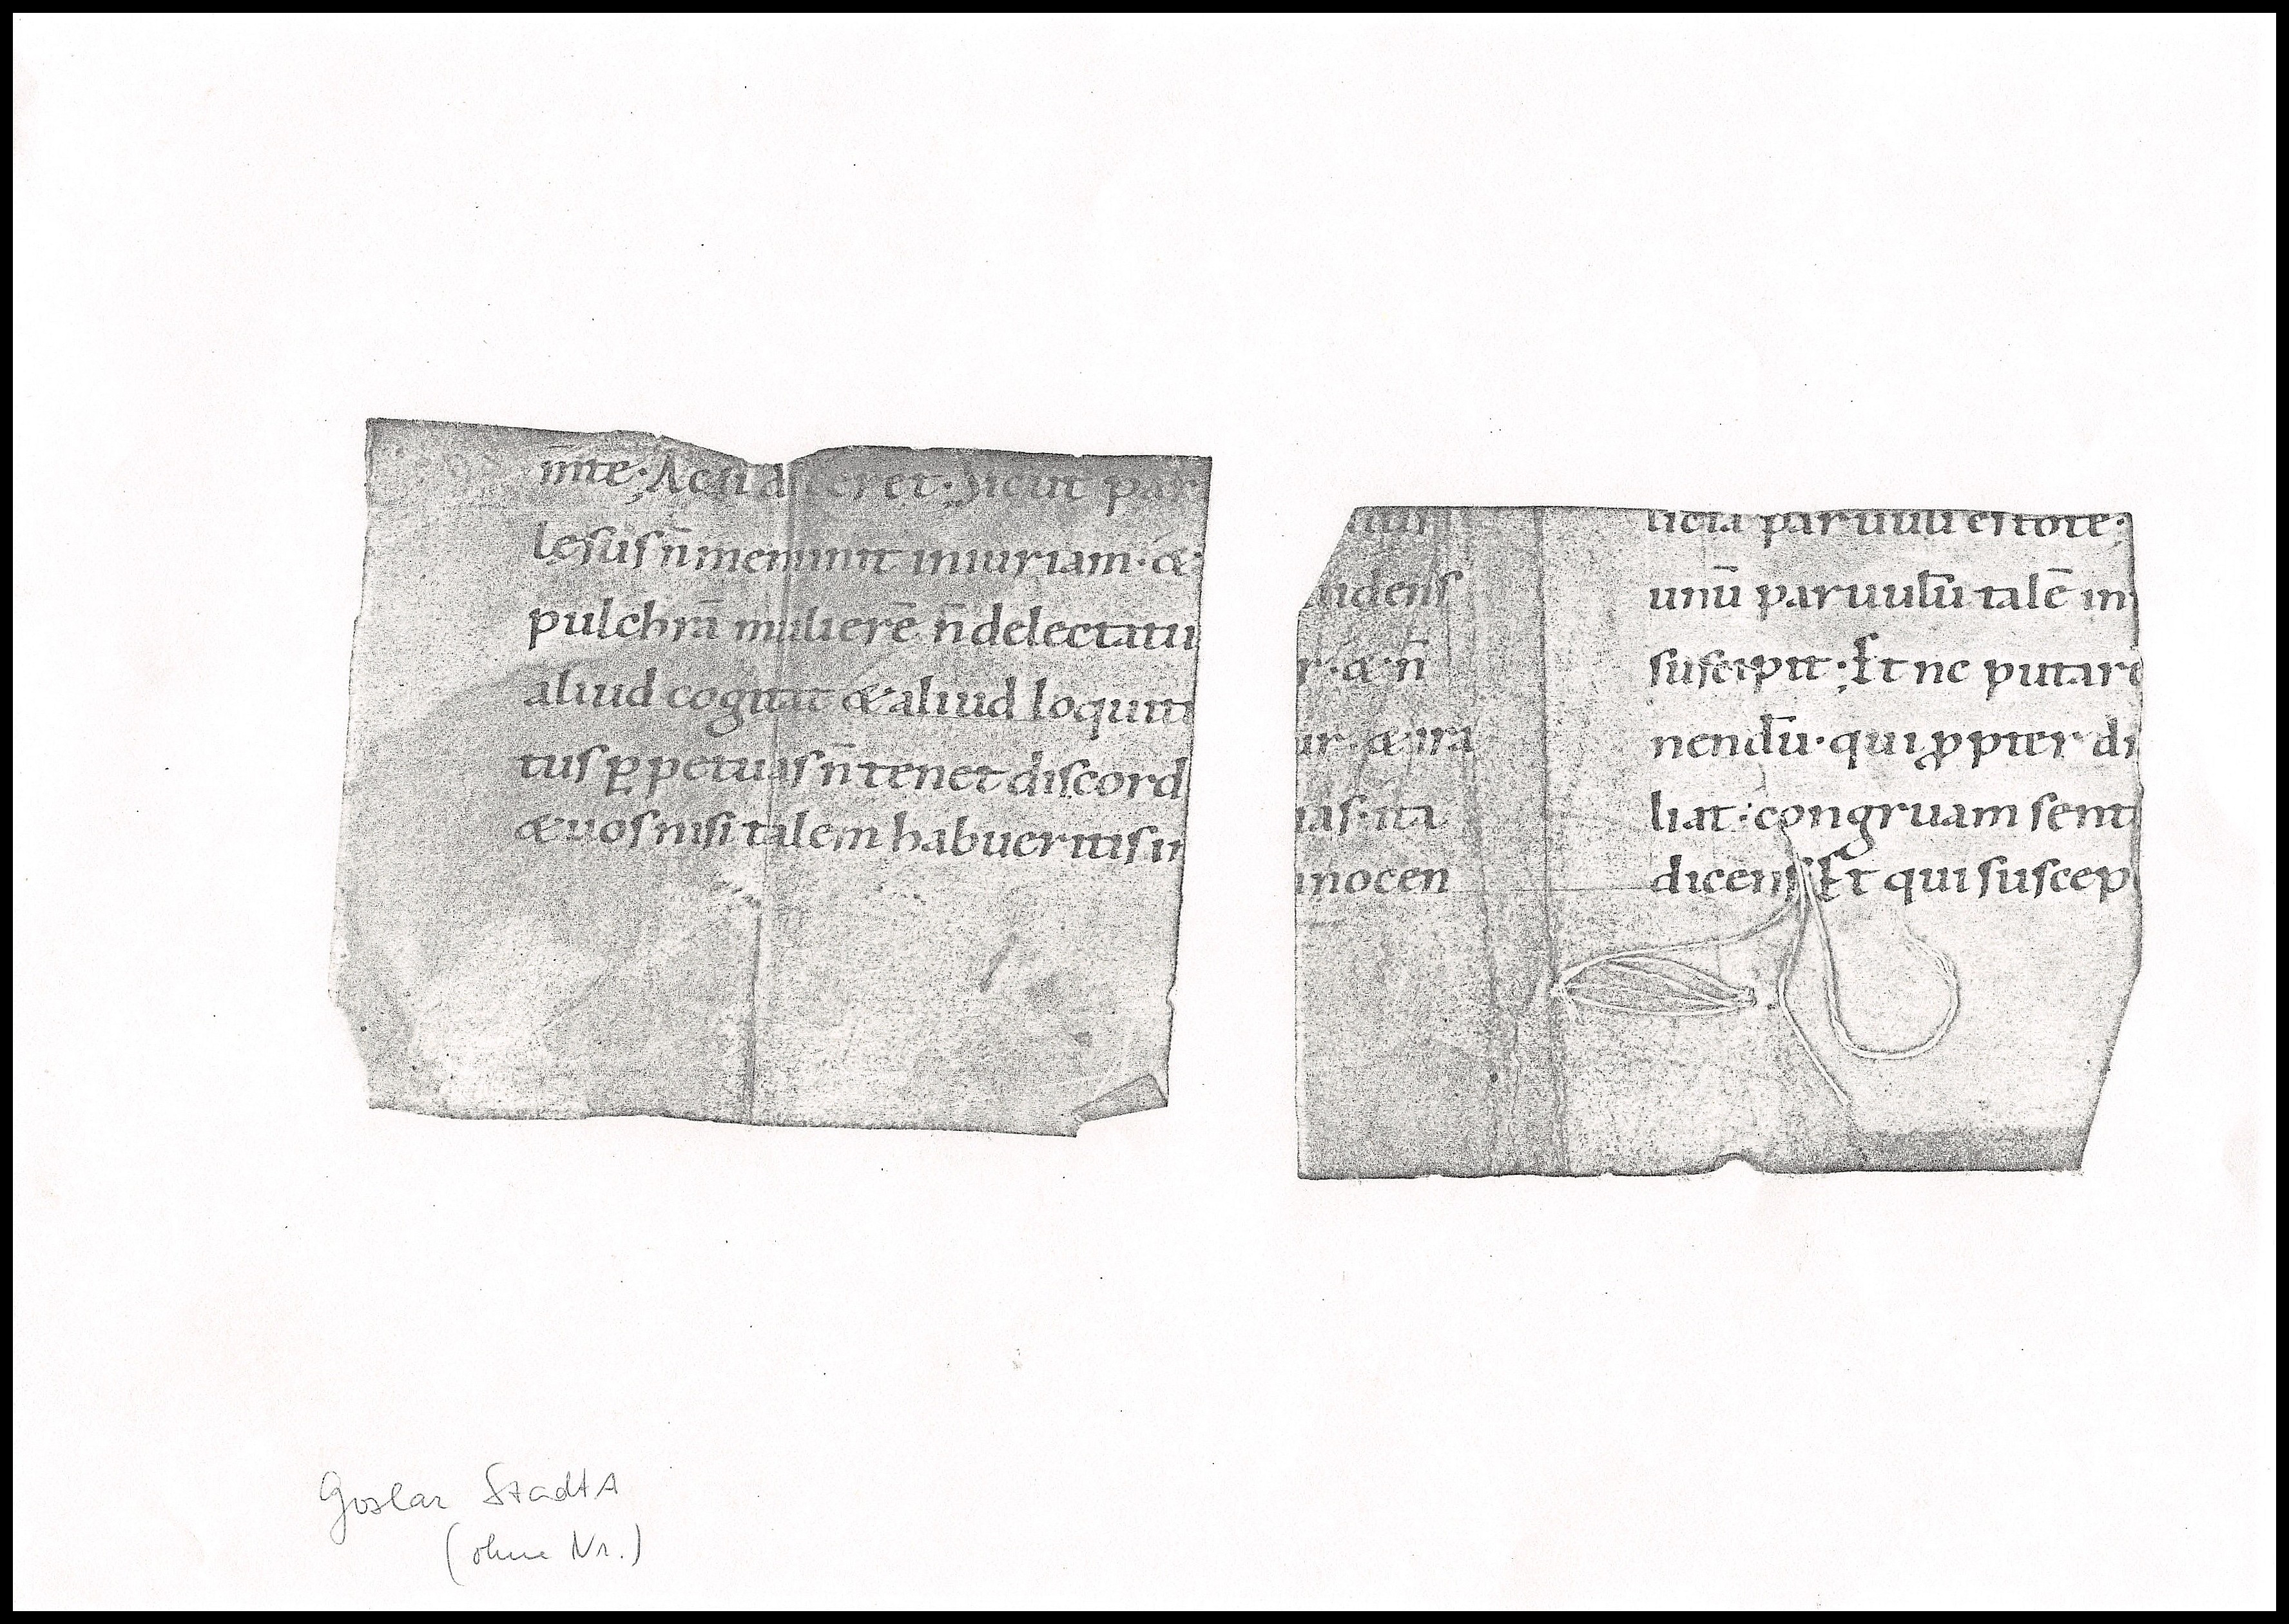 mīte· Ac si diceret· Sicut par
lesus n̄ meminit iniuriam· &
pulchrā mulierē n̄ delectatu
aliud cogitat & aliud loquit
tus ꝑpetuas n̄ tenet discord
& uos nisi talem habueritis in
uidens
r· & n̄
ur· & ira
uas· ita
nnocen
licia paruuli estote·
unū paruulū talē in
suscipit· Et ne putare
nendū· qui ꝓpter di
liat· congruam sent
dicens Et qui suscep
Goslar StadtA
(ohne Nr.)